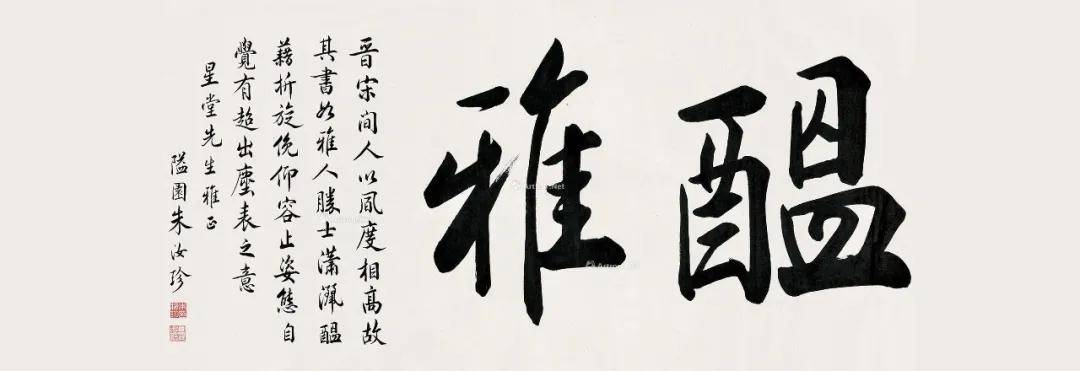 醖雅
晋宋间人以风度相高故
其书如雅人胜士潇洒醖
藉折旋俛仰容止姿态自
觉有超出尘表之意
星堂先生雅正
隘园朱汝珍